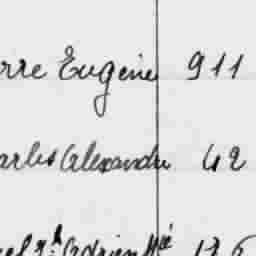 rre Eugène 911
arles Alexandre 42
Adrien